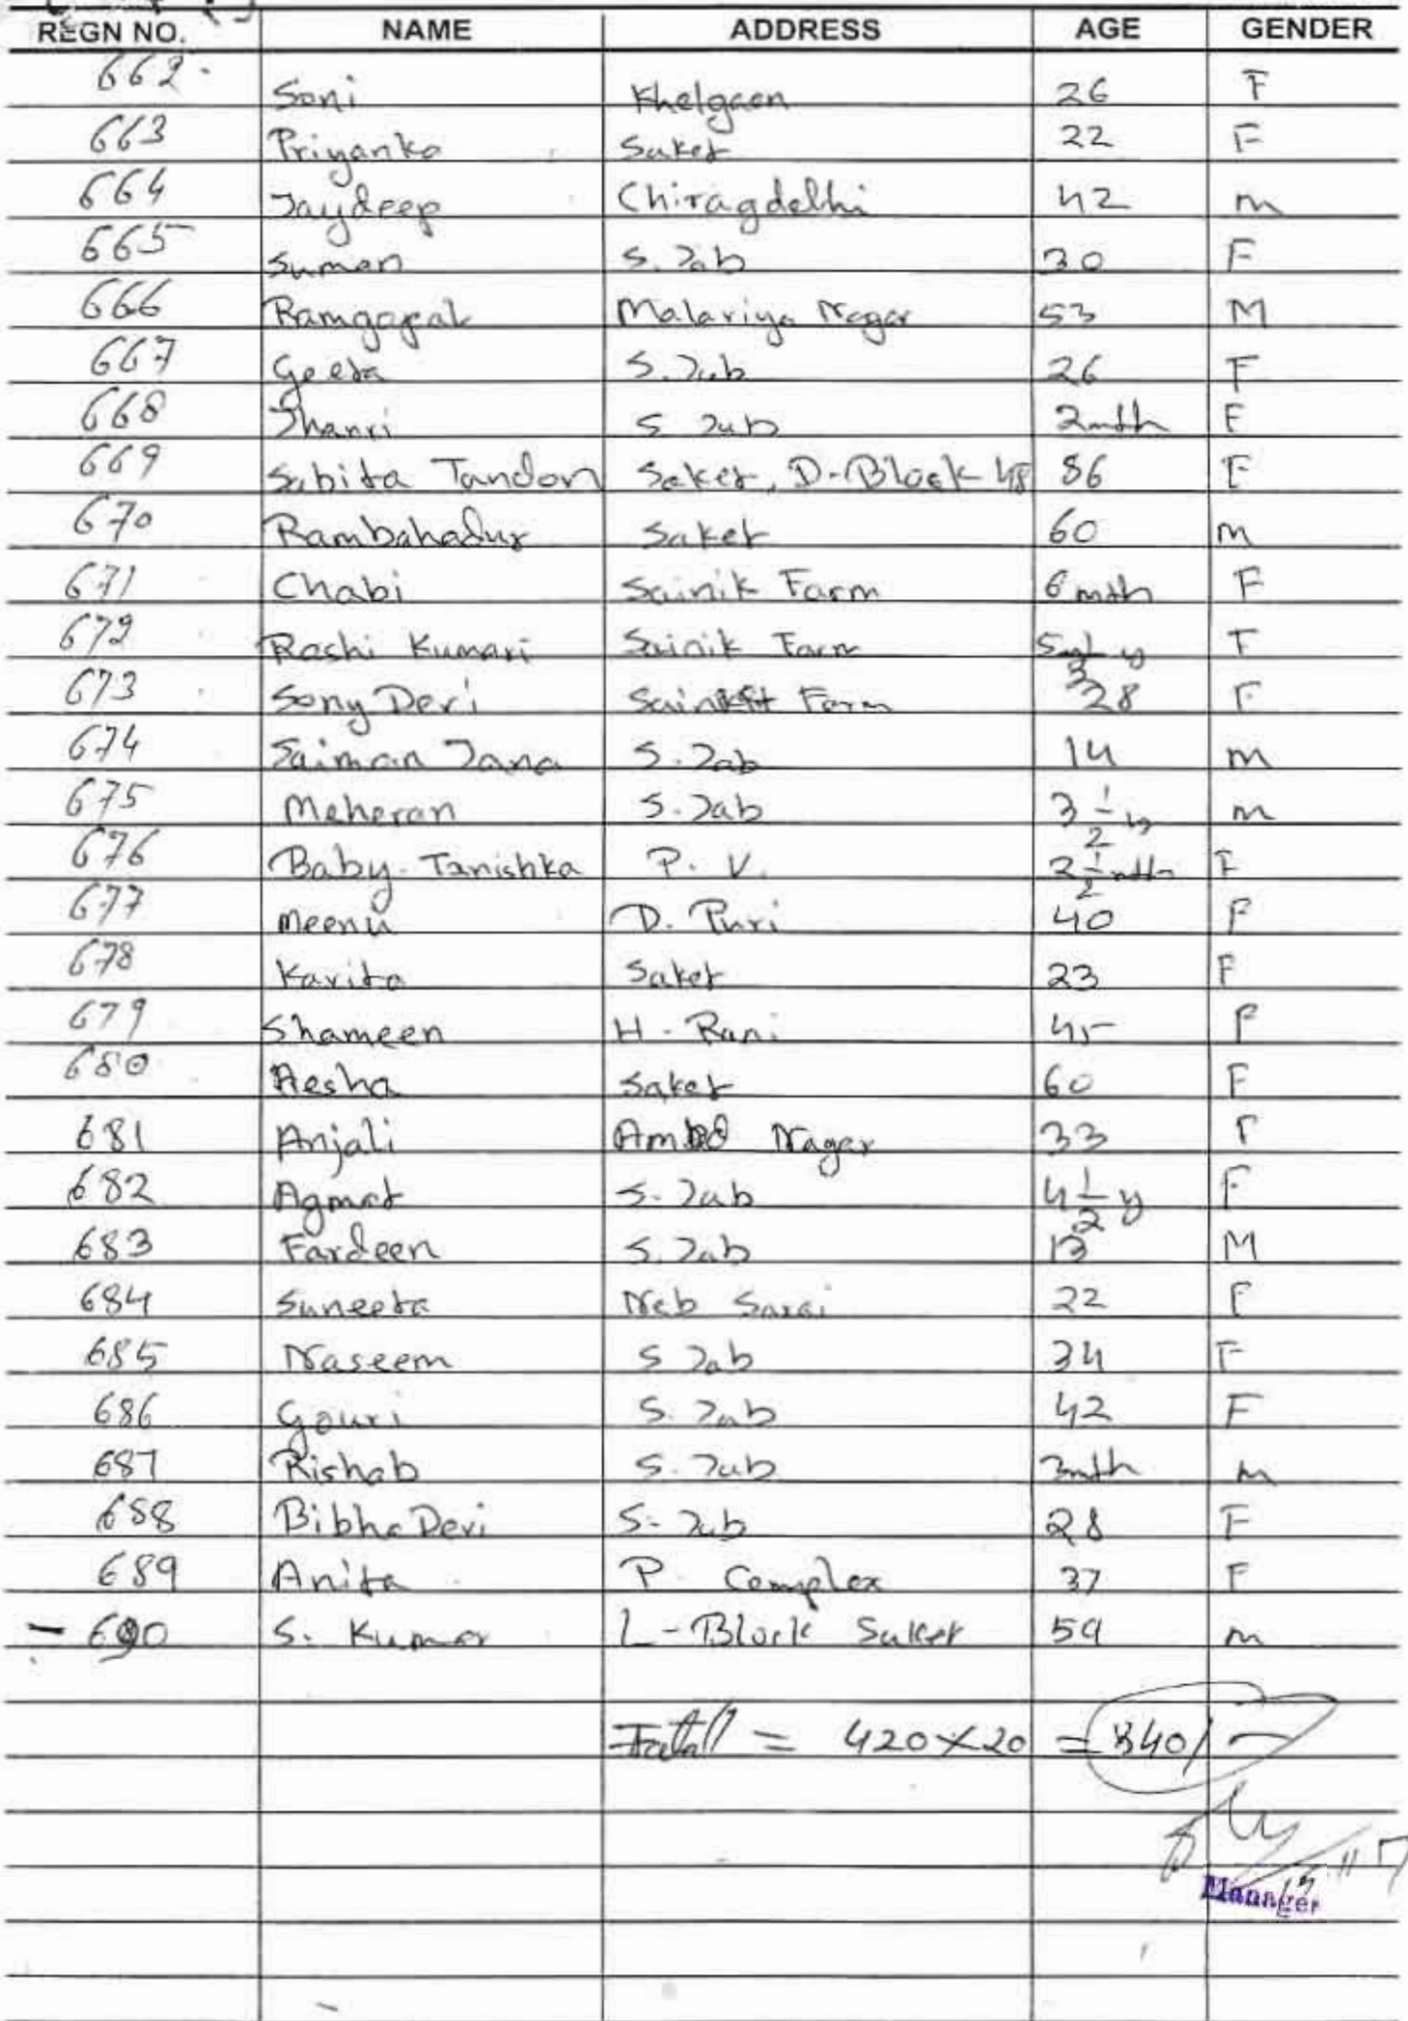 REGN NO. NAME ADDRESS AGE GENDER
662 Soni Khelgaon 26 F
663 Priyanka Saket 22 F
664 Jaydeep Chiragdelhi 42 m
665 Suman S. Jab 30 F
666 Ramgopal Malariya Nagar 53 M
667 Geeta S. Jab 26 F
668 S Jab 2mth F
669 Sabita Tandon Saket, D-Block 48 86 F
670 Rambahadur Saket 60 m
671 Chabi Sainik Farm 6 mth F
672 Rashi Kumari Sainik Farm F
673 Sony Devi Farm 28 F
674 Saiman Jana S. Jab 14 m
675 Meheran S. Jab 3 1/2 y m
676 Baby Tanishka P. V. 2 1/2 mth F
677 Meenu D. Puri 40 F
678 Kavita Saket 23 F
679 Shameen H- Rani 45 F
680 Aesha Saket 60 F
681 Anjali Nagar 33 F
682 Agmat S. Jab 4 1/2 y F
683 Fardeen S. Jab 13 M
684 Suneeta Neb Sarai 22 F
685 Naseem S Jab 34 F
686 Gouri S. Jab 42 F
687 Rishab S. Jab 3mth m
688 Bibha Devi S- Jab 28 F
689 Anita P. Complex 37 F
- 690 S. Kumar L-Block Saket 59 m
Totall = 420 x 20 = 840/-
Manager